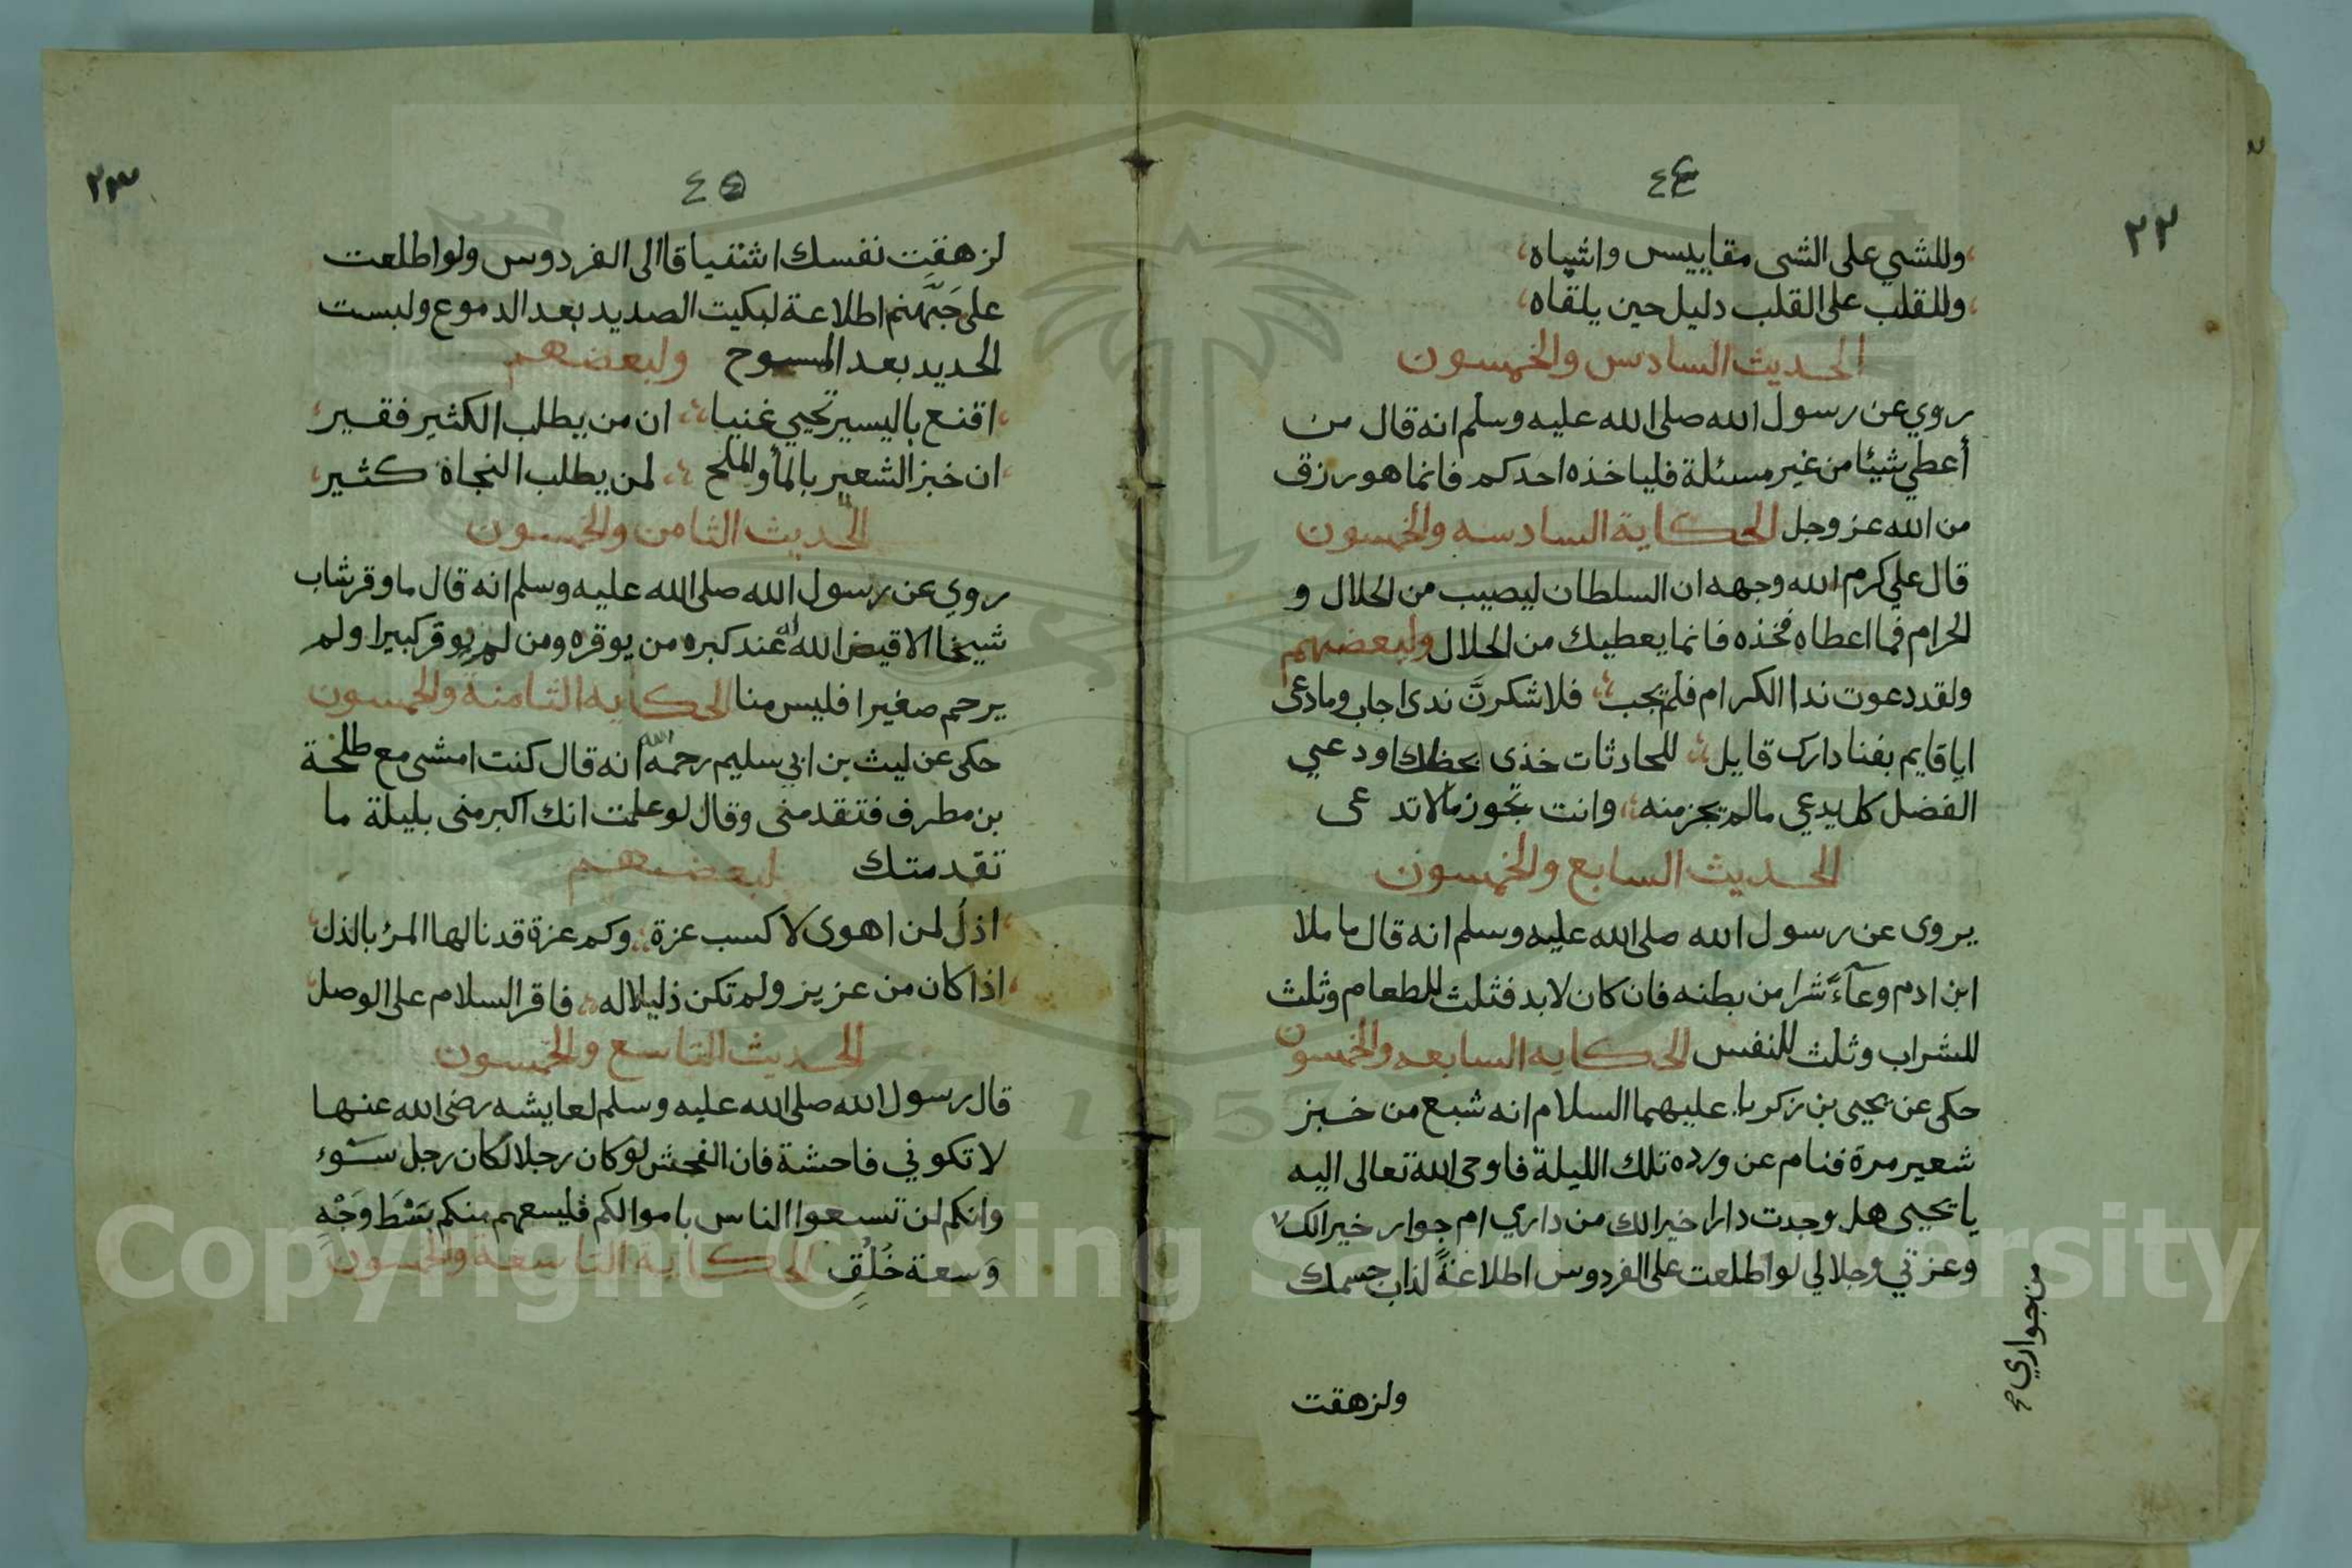 ٤٤
٢٢
وللشي على الشى مقاييس واشباه
وللقلب على القلب دليل حين يلقاه
الحديث السادس والخمسون
روي عن رسول الله صلى الله عليه وسلم انه قال من
أعطي شيئا من غير مسئلة فلياخذه احدكم فانما هو رزق
من الله عز وجل الحكاية السادسه والخمسون
قال علي كرم الله وجهه ان السلطان ليصيب من الحلال و
الحرام فما اعطاه فخذه فانما يعطيك من الحلال ولبعضهم
ولقد دعوت ندا الكرام فلم يجب فلاشكرنَّ ندى اجاب وما دعى
ايا قايم بفنا دارك قايل للحادثات خذى بحظك او دعي
الفضل كل يدعي مالم يجز منه وانت تجوز مالا تدعى
الحديث السابع والخمسون
يروى عن رسول الله صلى الله عليه وسلم انه قال ما ملا
ابن ادم وعآءً شرا من بطنه فان كان لابد فثلث للطعام وثلث
للشراب وثلث للنفس الحكايه السابعه والخمسون
حكى عن يحيى بن زكريا عليهما السلام انه شبع من خبز
شعير مرة فنام عن ورده تلك الليلة فاوحى الله تعالى اليه
يا يحيى هل وجدت دارا خيرا لك من داري ام جوار خيرا لك لا
من جواري صح
وعزتي وجلالي لو اطلعت على الفردوس اطلاعةً لذاب جسمك
ولزهقت
٤٥
٢٣
لزهقت نفسك اشتياقا الى الفردوس ولو اطلعت
على جَهَنَّم اطلاعة لبكيت الصديد بعد الدموع ولبست
الحديد بعد المسوح ولبعضهم
اقنع باليسير تحيي غنيا ان من يطلب الكثير فقير
ان خبز الشعير بالمأ والملح لمن يطلب النجاة كثير
الحديث الثامن والخمسون
روي عن رسول الله صلى الله عليه وسلم انه قال ما وقر شاب
شيخا الا قيض الله له عند كبره من يوقره ومن لم يوقر كبيرا ولم
يرحم صغيرا فليس منا الحكايه الثامنة والخمسون
حكى عن ليث بن ابي سليم رحمه الله انه قال كنت امشى مع طلحة
بن مطرف فتقدمنى وقال لو علمت انك اكبر منى بليلة ما
تقدمتك لبعضهم
اذل لمن اهوى لا كسب عزة وكم عزة قد نالها المرٔ بالذل
اذا كان من عزيز ولم تكن ذليلا له فاقر السلام على الوصل
الحديث التاسع والخمسون
قال رسول الله صلى الله عليه وسلم لعايشه رضى الله عنها
لا تكوني فاحشة فان الفحش لو كان رجلا لكان رجل سَوْء
وانكم لن تسعوا الناس باموالكم فليسعهم منكم بَسْطَ وَجْهٍ
وَسعة خُلُقٍ الحكاية التاسعة والخمسون
Copyright © King Saud University
1957